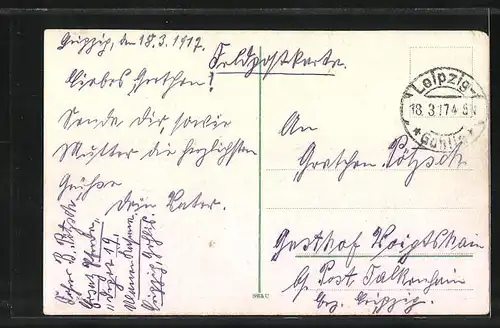 Leipzig, den 18.3.1917.
Feldpostkarte.
Liebes Gretchen!
Sende Dir, sowie
Mutter die herzlichsten
Grüße
Dein Vater.
Leipzig
18.3.17 4-5N
* Gohlis *
An
Gretchen Pötzsch
Gasthof Voigtshain
b. Post Falkenhain
Bez. Leipzig.
B. Pötzsch
Leipzig Gohlis